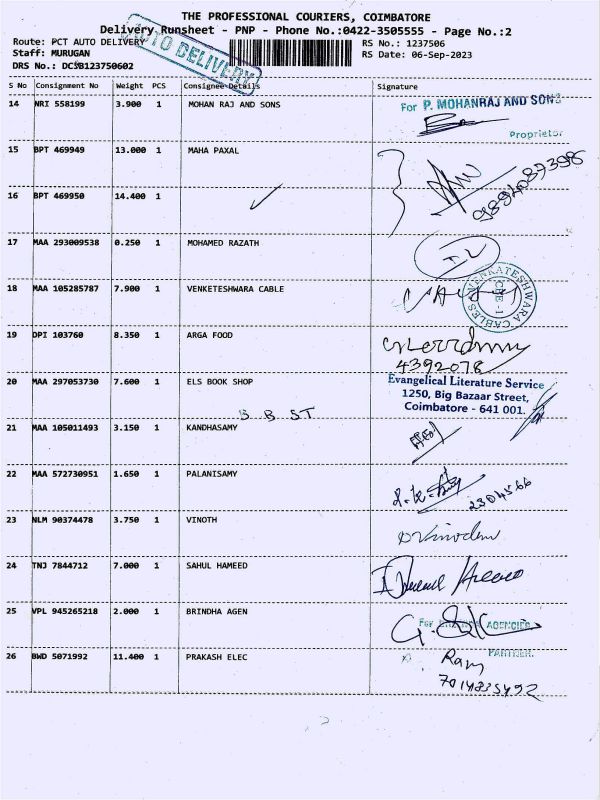 THE PROFESSIONAL COURIERS, COIMBATORE
Delivery Runsheet - PNP - Phone No.:0422-3505555 - Page No.:2
Route: PCT AUTO DELIVERY
RS No.: 1237506
Staff: MURUGAN
RS Date: 06-Sep-2023
DRS No.: DCSB123750602
AUTO DELIVERY
S No Consignment No Weight PCS Consignee Details Signature
14 NRI 558199 3.900 1 MOHAN RAJ AND SONS
For P. MOHANRAJ AND SONS
Proprietor
15 BPT 469949 13.000 1 MAHA PAXAL
9894087398
16 BPT 469950 14.400 1
17 MAA 293009538 0.250 1 MOHAMED RAZATH
18 MAA 105285787 7.900 1 VENKETESHWARA CABLE
VENKATESHWARA CABLES
CBE - 1
19 DPI 103760 8.350 1 ARGA FOOD
4392078
20 MAA 297053730 7.600 1 ELS BOOK SHOP
Evangelical Literature Service
1250, Big Bazaar Street,
Coimbatore - 641 001.
B. B ST
21 MAA 105011493 3.150 1 KANDHASAMY
22 MAA 572730951 1.650 1 PALANISAMY
2304566
23 NLM 90374478 3.750 1 VINOTH
24 TNJ 7844712 7.000 1 SAHUL HAMEED
25 VPL 945265218 2.000 1 BRINDHA AGEN
For BRINDHA AGENCIES
PARTNER.
26 BWD 5071992 11.400 1 PRAKASH ELEC
Ram
7014835492